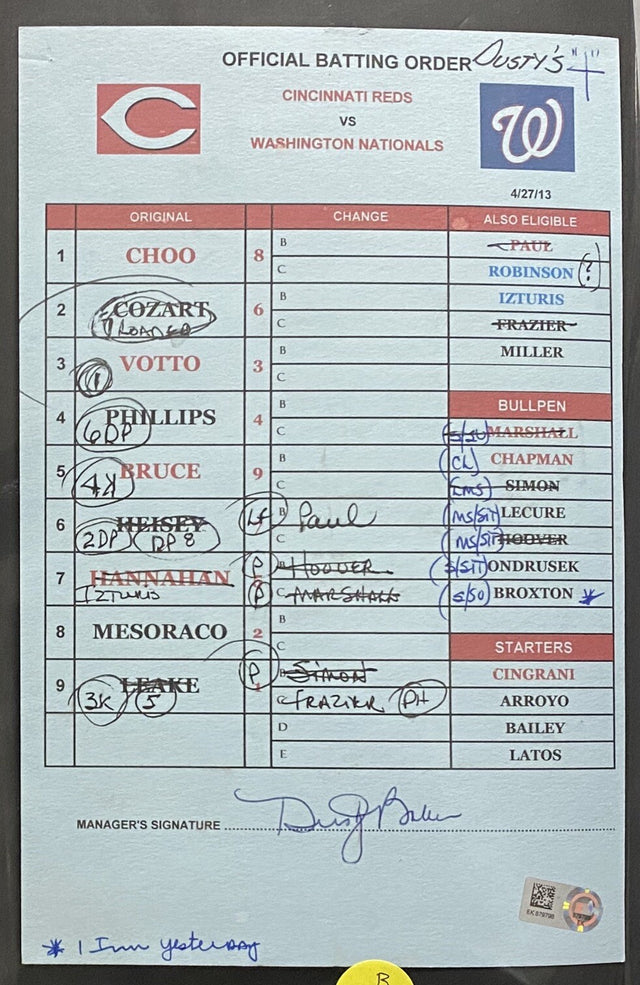 OFFICIAL BATTING ORDER DUSTY'S "+"
CINCINNATI REDS
VS
WASHINGTON NATIONALS
C
W
4/27/13
ORIGINAL CHANGE ALSO ELIGIBLE
1 CHOO 8 B PAUL
C ROBINSON (?)
2 COZART 6 B IZTURIS
C FRAZIER
3 VOTTO 3 B MILLER
1 C
4 PHILLIPS 4 B BULLPEN
6DP C MARSHALL
5 BRUCE 9 B (CL) CHAPMAN
4K C SIMON
6 HEISEY LF B Paul (MS/SIT) LECURE
2DP DP 8 C (MS/SIT) HOOVER
7 HANNAHAN P B HOOVER (S/SIT) ONDRUSEK
IZTURIS P C MARSHALL (S/SO) BROXTON *
8 MESORACO 2 B
C STARTERS
9 LEAKE P SIMON CINGRANI
3K 5 1 C FRAZIER PH ARROYO
D BAILEY
E LATOS
MANAGER'S SIGNATURE Dusty Baker
EK 879798
* 1 Inn yesterday
B